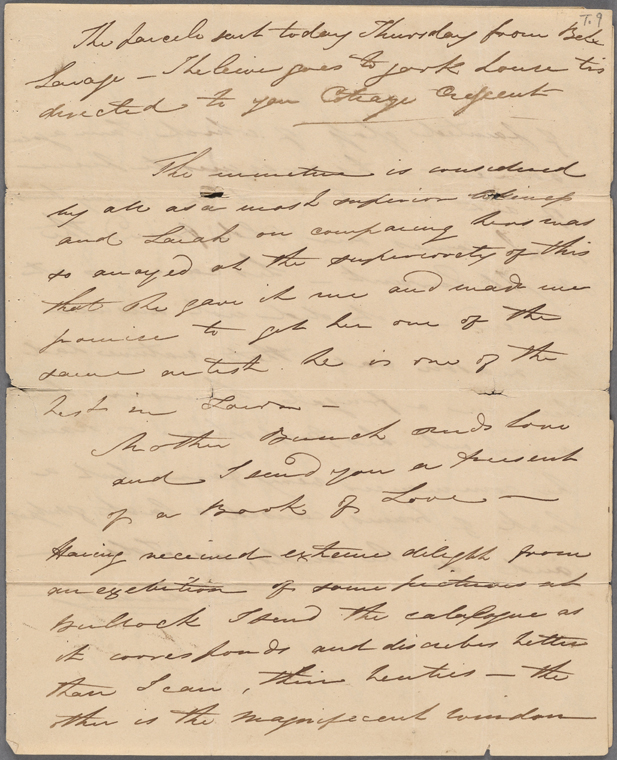 T. 9
The parcels sent today Thursday from Bele
Savage — The goes to York House tis
directed to you Cottage Crescent
The minetuer is considered
by all as a most superior
and Sarah on comparing hers was
so anoyed at the superiority of this
that she gave it me and made me
promise to get her one of the
same artist. he is one of the
best in Town —
Mother Bunch sends love
and I send you a present
of a Book of Love —
Having received extreme delight from
an exebition of some pictures at
Bullock I send the catalogue as
it corresponds and describes better
than I can, their beuties — the
other is the magnifecent window